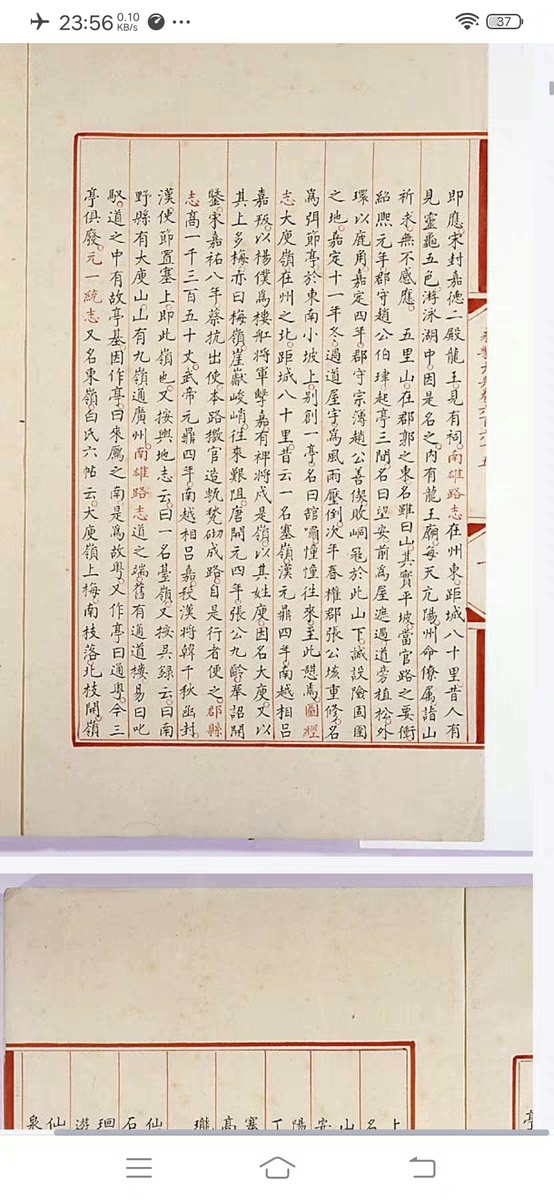 23:56
0.10
KB/s
37
即應宋封嘉德二殿龍王見有祠南雄路志在州東距城八十里昔人有
見靈龜五色游泳湖中因是名之內有龍王廟每天亢陽州命僚属詣山
祈求無不感應 五里山在郡郭之東名雖曰山其實平坡當官路之要衝
紹熙元年郡守趙公伯瑋起亭三間名曰望安前為屋遮過道旁植松外
環以鹿角嘉定四年郡守宗傳趙公善偰敗峒冦於此山下誠設險固圉
之地嘉定十一年冬過道屋宇為風雨壓倒次年春權郡張公垓重修名
為弭節亭於東南小坡上別創一亭名曰舘嚼憧憧往來至此憇焉圖經
志大庾嶺在州之北距城八十里昔云一名塞嶺漢元鼎四年南越相吕
嘉叛以楊僕為樓舡將軍擊嘉有裨將戍是嶺以其姓庾因名大庾又以
其上多梅亦曰梅嶺崖巘峻峭往來艱阻唐開元四年張公九齡奉詔開
鑿宋嘉祐八年蔡抗出使本路撒官造甎甃砌成路自是行者便之郡縣
志高一千三百五十丈武帝元鼎四年南越相吕嘉殺漢將韓千秋函封
漢使節置塞上即此嶺也又按輿地志云曰一名臺嶺又按吳録云曰南
野縣有大庾山山有九嶺通廣州南雄路志道之端舊有通道樓易曰叱
馭道之中有故亭基因作亭曰來鴈之南是為故粤又作亭曰通粤今三
亭俱廢元一統志又名東嶺白氏六帖云大庾嶺上梅南枝落北枝開嶺